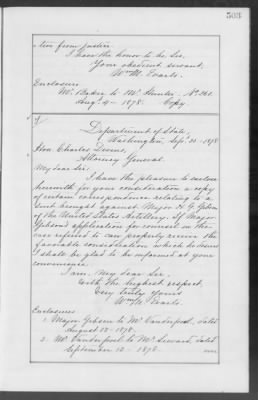 503
tion from justice.
I have the honor to be, Sir,
Your obedient servant,
Wm M. Evarts.
Enclosure
Mr. Baker to Mr. Hunter, No. 261.
Augt. 4 - 1878. Copy
Department of State,
Washington, Sept. 21. 1878
Hon. Charles Devens,
Attorney General.
My dear Sir:
I have the pleasure to enclose
herewith for your consideration a copy
of certain correspondence relating to a
suit brought against Major H. G. Gibson
of the United States Artillery. If Major
Gibson's application for counsel in the
case referred to can properly receive the
favorable consideration which he desires
I shall be glad to be informed at your
convenience.
I am, My dear Sir,
With the highest respect,
Very truly yours
Wm M. Evarts.
Enclosures
1. Major Gibson to Mr. Vanderpool, dated
August 12 - 1878.
2. Mr. Vanderpool to Mr. Seward, dated
September 12 - 1878